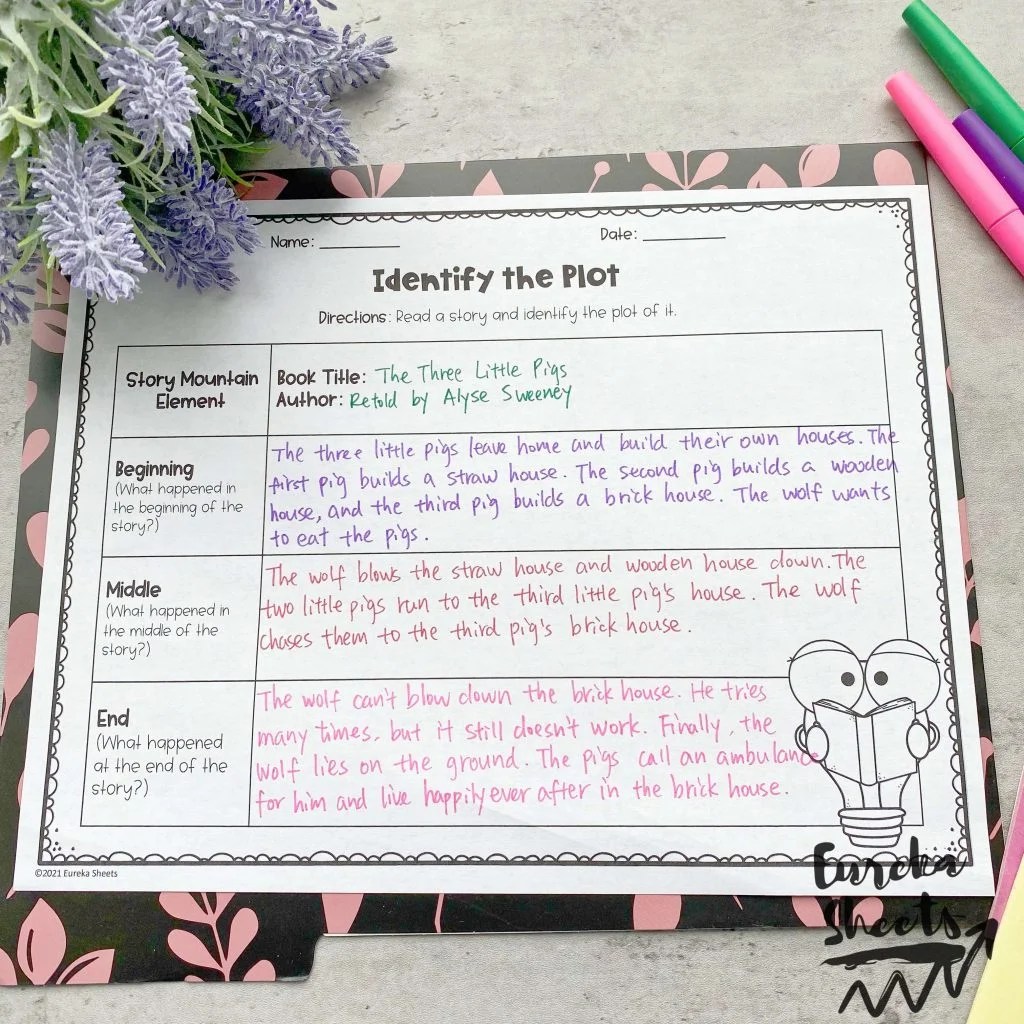 Name: __________ Date: __________
Identify the Plot
Directions: Read a story and identify the plot of it.
Story Mountain
Element
Book Title: The Three Little Pigs
Author: Retold by Alyse Sweeney
Beginning
(What happened in
the beginning of the
story?)
The three little pigs leave home and build their own houses. The
first pig builds a straw house. The second pig builds a wooden
house, and the third pig builds a brick house. The wolf wants
to eat the pigs.
Middle
(What happened in
the middle of the
story?)
The wolf blows the straw house and wooden house down. The
two little pigs run to the third little pig's house. The wolf
chases them to the third pig's brick house.
End
(What happened
at the end of the
story?)
The wolf can't blow down the brick house. He tries
many times, but it still doesn't work. Finally, the
wolf lies on the ground. The pigs call an ambulance
for him and live happily ever after in the brick house.
©2021 Eureka Sheets
Eureka
Sheets